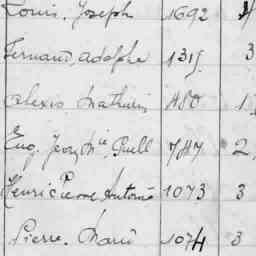 Louis, Joseph 1692 4
Fernand, Adolphe 1315 3
Alexis Mathurin 480 1
Eug. Jean Mie, Guell 787 2
Henri Pierre Antoine 1073 3
Pierre. Marie 1074 3